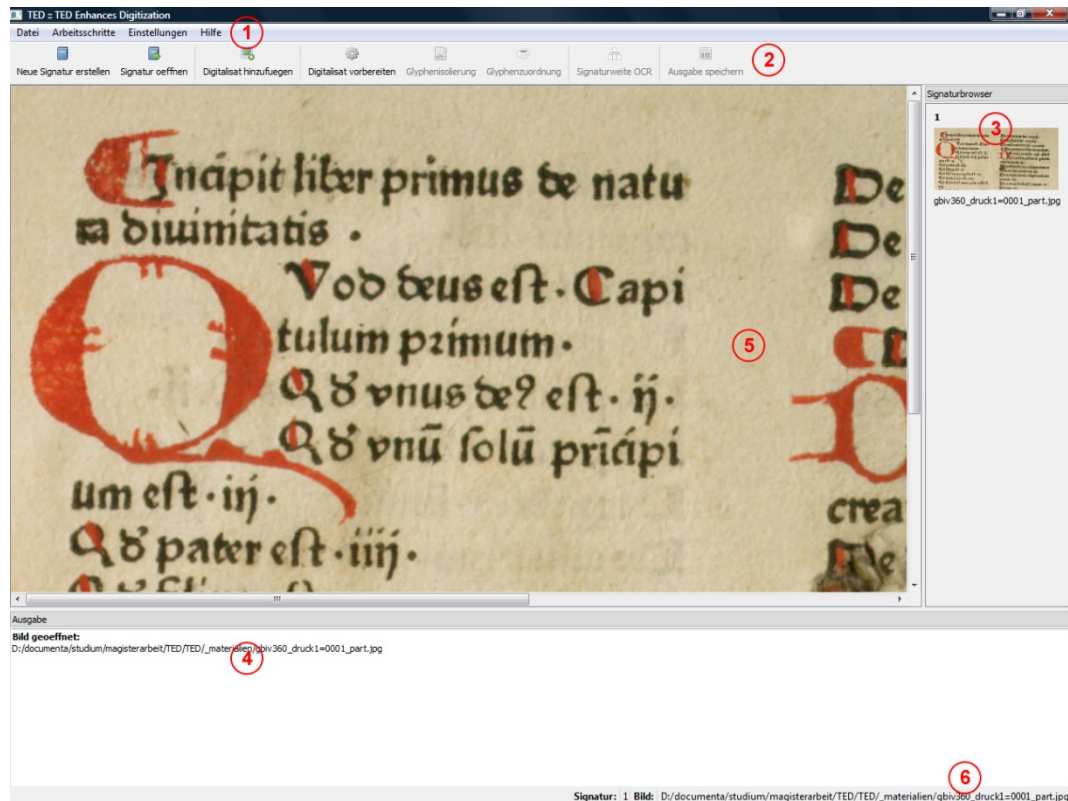 TED :: TED Enhances Digitization
Datei Arbeitsschritte Einstellungen Hilfe
1
Neue Signatur erstellen Signatur oeffnen Digitalisat hinzufuegen Digitalisat vorbereiten Glyphenisolierung Glyphenzuordnung Signaturweite OCR Ausgabe speichern
2
Incipit liber primus de natu
ra diuinitatis .
QVod deus est . Capi
tulum primum .
Qđ vnus deꝰ est . ij .
Qđ vnū solū prīcipi
um est . iij .
Qđ pater est . iiij .
De
De
De
crea
De
5
Signaturbrowser
1
3
gbiv360_druck1=0001_part.jpg
Ausgabe
Bild geoeffnet:
D:/documenta/studium/magisterarbeit/TED/TED/_materialien/gbiv360_druck1=0001_part.jpg
4
6
Signatur: 1 Bild: D:/documenta/studium/magisterarbeit/TED/TED/_materialien/gbiv360_druck1=0001_part.jpg